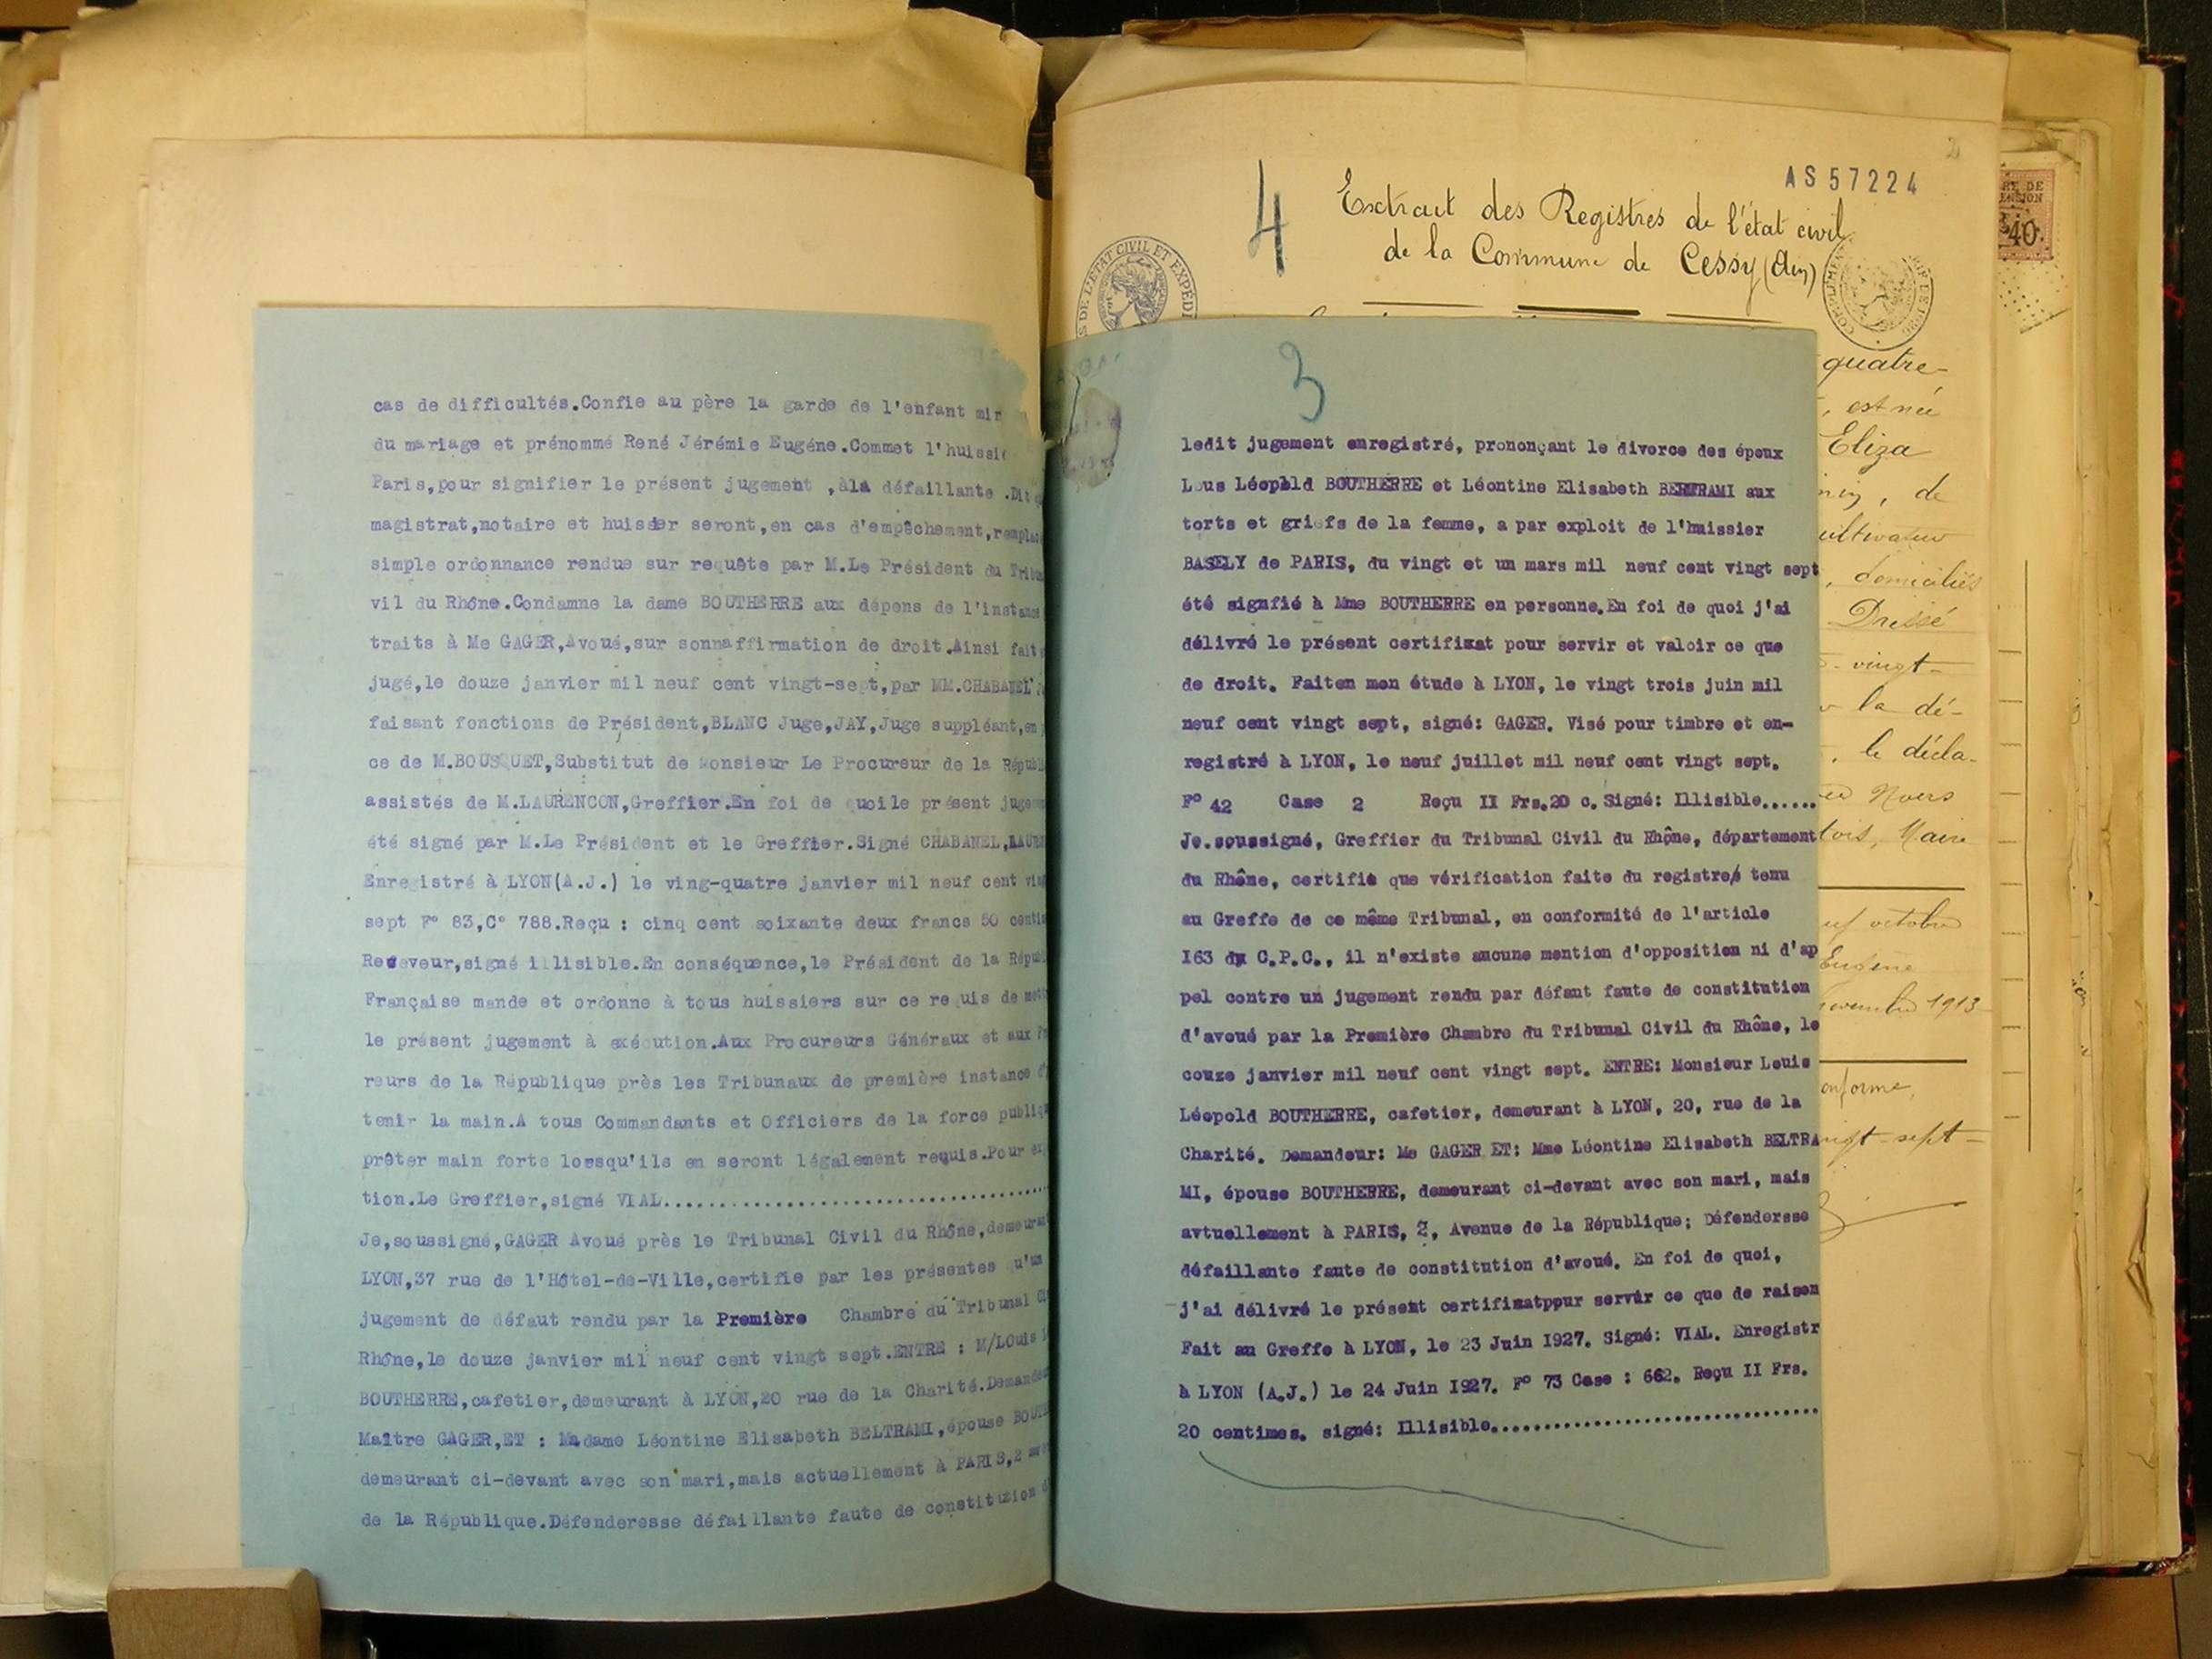 cas de difficultés.Confie au père la garde de l'enfant
du mariage et prénommé René Jérémie Eugéne.Commet l'huissi
Paris,pour signifier le présent jugement ,àla défaillante .Dit
magistrat,notaire et huissier seront,en cas d'empêchement,remplac
simple ordonnance rendue sur requête par M.Le Président du Tribu
vil du Rhône.Condamne la dame BOUTHERRE aux dépens de l'instance
traits à Me GAGER,Avoué,sur sonnaffirmation de droit.Ainsi fait
jugé,le douze janvier mil neuf cent vingt-sept,par MM.CHABANEL
faisant fonctions de Président,BLANC Juge,JAY,Juge suppléant,en
ce de M.BOUSQUET,Substitut de Monsieur Le Procureur de la Républ
assistés de M.LAURENCON,Greffier.En foi de quoile présent juge
été signé par M.Le Président et le Greffier.Signé CHABANEL,LAURE
Enregistré à LYON(A.J.) le ving-quatre janvier mil neuf cent vin
sept F° 83,C° 788.Reçu : cinq cent soixante deux francs 50 centi
Receveur,signé illisible.En conséquence,le Président de la Répub
Française mande et ordonne à tous huissiers sur ce requis de mett
le présent jugement à exécution.Aux Procureurs Généraux et aux Pr
reurs de la République près les Tribunaux de première instance d'
tenir la main.A tous Commandants et Officiers de la force publiqu
prêter main forte losqu'ils en seront légalement requis.Pour ex
tion.Le Greffier,signé VIAL.....................................
Je,soussigné,GAGER Avoué près le Tribunal Civil du Rhône,demeurant
LYON,37 rue de l'Hôtel-de-Ville,certifie par les présentes qu'un
jugement de défaut rendu par la Première Chambre du Tribunal Ci
Rhône,le douze janvier mil neuf cent vingt sept.ENTRE : M/LOuis L
BOUTHERRE,cafetier,demeurant à LYON,20 rue de la Charité.Demandeu
Maître GAGER,ET : Madame Léontine Elisabeth BELTRAMI,épouse BOUTH
demeurant ci-devant avec son mari,mais actuellement à PARIS,2
de la République.Défenderesse défaillante faute de constitution d
AS57224
4
Extrait des Registres de l'état civil
de la Commune de Cessy (Ain)
3
ledit jugement enregistré, prononçant le divorce des époux
Lous Léopold BOUTHERRE et Léontine Elisabeth BERTRAMI aux
torts et griefs de la femme, a par exploit de l'huissier
BASELY de PARIS, du vingt et un mars mil neuf cent vingt sept
été signfié à Mme BOUTHERRE en personne.En foi de quoi j'ai
délivré le présent certifixat pour servir et valoir ce que
de droit. Faiten mon étude à LYON, le vingt trois juin mil
neuf cent vingt sept, signé: GAGER. Visé pour timbre et en-
registré à LYON, le neuf juillet mil neuf cent vingt sept.
F° 42 Case 2 Reçu II Frs.20 c. Signé: Illisible......
Je.soussigné, Greffier du Tribunal Civil du Rhône, département
du Rhône, certifie que vérification faite du registre tenu
au Greffe de ce même Tribunal, en conformité de l'article
I63 du C.P.C., il n'existe aucune mention d'opposition ni d'ap
pel contre un jugement rendu par défaut faute de constitution
d'avoué par la Première Chambre du Tribunal Civil du Rhône, le
couze janvier mil neuf cent vingt sept. ENTRE: Monsieur Louis
Léopold BOUTHERRE, cafetier, demeurant à LYON, 20, rue de la
Charité. Demandeur: Me GAGER ET: Mme Léontine Elisabeth BELTRA
MI, épouse BOUTHERRE, demeurant ci-devant avec son mari, mais
avtuellement à PARIS, 2, Avenue de la République; Défendersse
défaillante faute de constitution d'avoué. En foi de quoi,
j'ai délivré le présent certifixatppur servir ce que de raison
Fait au Greffe à LYON, le 23 Juin I927. Signé: VIAL. Enregistr
à LYON (A.J.) le 24 Juin I927. F° 73 Case : 662. Reçu II Frs.
20 centimes. signé: Illisible..................................
quatre-
, est née
Eliza
, de
ultivateur
, domiciliés
Dressé
vingt-
la dé-
, le décla-
Noers
tois, Maire
uf octobre
Eugène
novembre 1913
onforme,
ingt-sept-
40